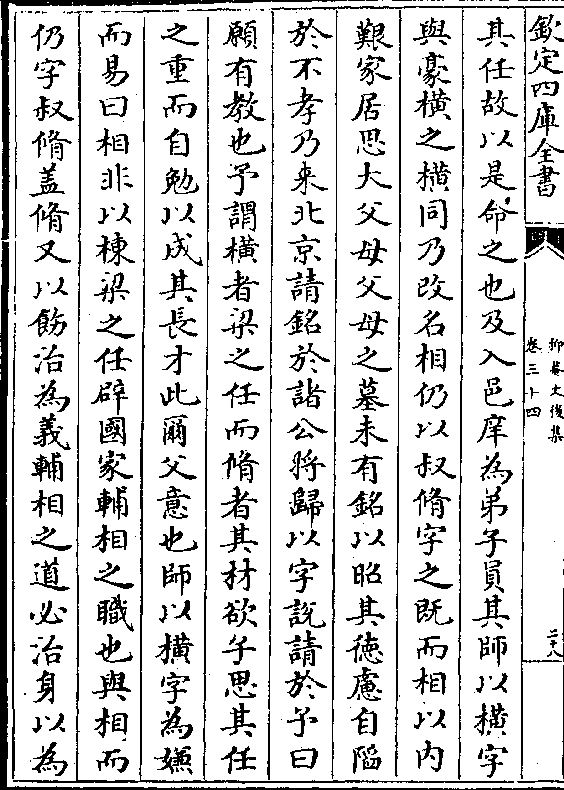 欽定四庫全書
抑菴文後集
卷三十四
二十八
其任故以是命之也及入邑庠為弟子員其師以橫字
與豪橫之橫同乃改名相仍以叔脩字之既而相以內
艱家居思大父母父母之墓未有銘以昭其德慮自陷
於不孝乃來北京請銘於諸公將歸以字說請於予曰
願有教也予謂橫者梁之任而脩者其材欲子思其任
之重而自勉以成其長才此爾父意也師以橫字為嫌
而易曰相非以棟梁之任辟國家輔相之職也與相而
仍字叔脩蓋脩又以飭治為義輔相之道必治身以為